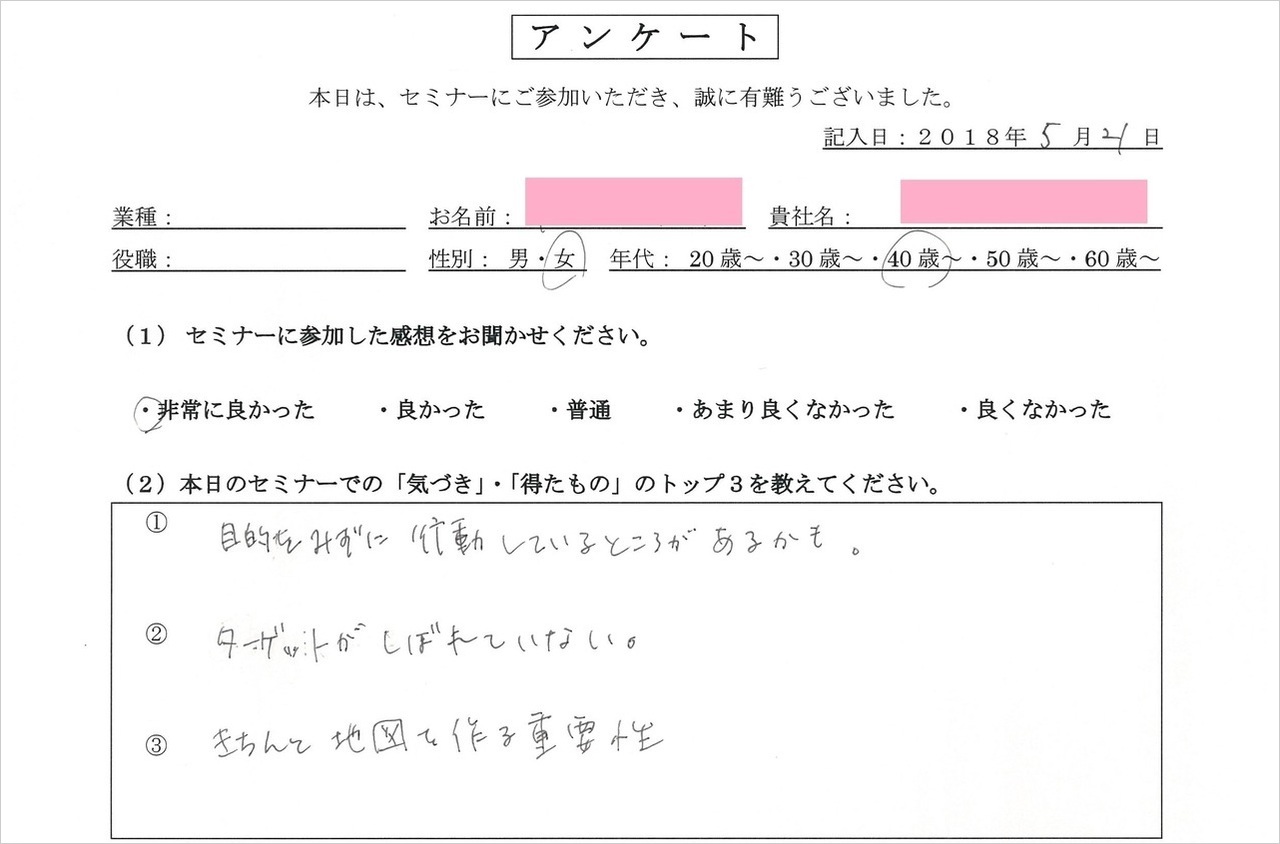 アンケート
本日は、セミナーにご参加いただき、誠に有難うございました。
記入日：２０１８年 5 月 21 日
業種： お名前： 貴社名：
役職： 性別： 男・女 年代： 20 歳～・30 歳～・40 歳～・50 歳～・60 歳～
（１） セミナーに参加した感想をお聞かせください。
・非常に良かった ・良かった ・普通 ・あまり良くなかった ・良くなかった
（２）本日のセミナーでの「気づき」・「得たもの」のトップ３を教えてください。
① 目的をみずに 行動しているところが あるかも。
② ターゲットが しばれていない。
③ きちんと 地図を作る重要性